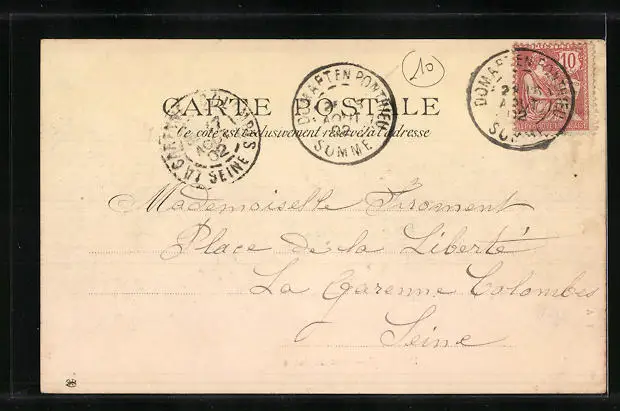 10
CARTE POSTALE
Ce côté est exclusivement réservé à l'adresse
DOMART EN PONTHIEU
AOUT
02
SOMME
DOMART EN PONTHIEU
21
AOUT
02
SOMME
10
REPUBLIQUE FRANÇAISE
LA GARENNE
SEINE
Mademoiselle Firoment
Place de la Liberté
La Garenne Colombes
Seine